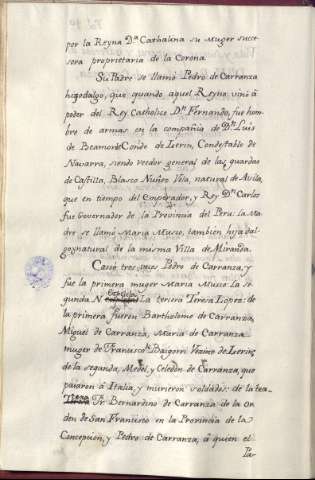 por la Reyna Dª Cathalina su Muger suce-
sora proprietaria de la Corona
Su Padre se llamó Pedro de Carranza
hijodalgo, que quando aquel Reyno vinó á
poder del Rey Catholico Dⁿ Fernando, fue hom-
bre de armas en la compañia de Dⁿ Luis
de Beamonde Conde de Lerin, Condestable de
Navarra, siendo Veedor general de las guardas
de Castilla, Blasco Nuñez Vela, natural de Avila,
que en tiempo del Emperador, y Rey Dⁿ Carlos
fue Governador de la Provincia del Peru: la Ma-
dre se llamó Maria Musco, tambien hija dal-
go, natural de la misma Villa de Miranda.
Casó tres veces Pedro de Carranza, y
fue la primera muger Maria Musco: la se-
gunda N la tercera Teresa Lopez: de
la primera fueron Bartholome de Carranza,
Miguel de Carranza, Maria de Carranza
muger de Francisco de Baigorri Vezino de Lerin:
de la segunda, Medel, y Celedon de Carranza, que
pasaron á Italia, y murieron soldados: de la
Fr. Bernardino de Carranza de la Or-
den de San Francisco en la Provincia de la
Concepcion, y Pedro de Carranza, á quien el